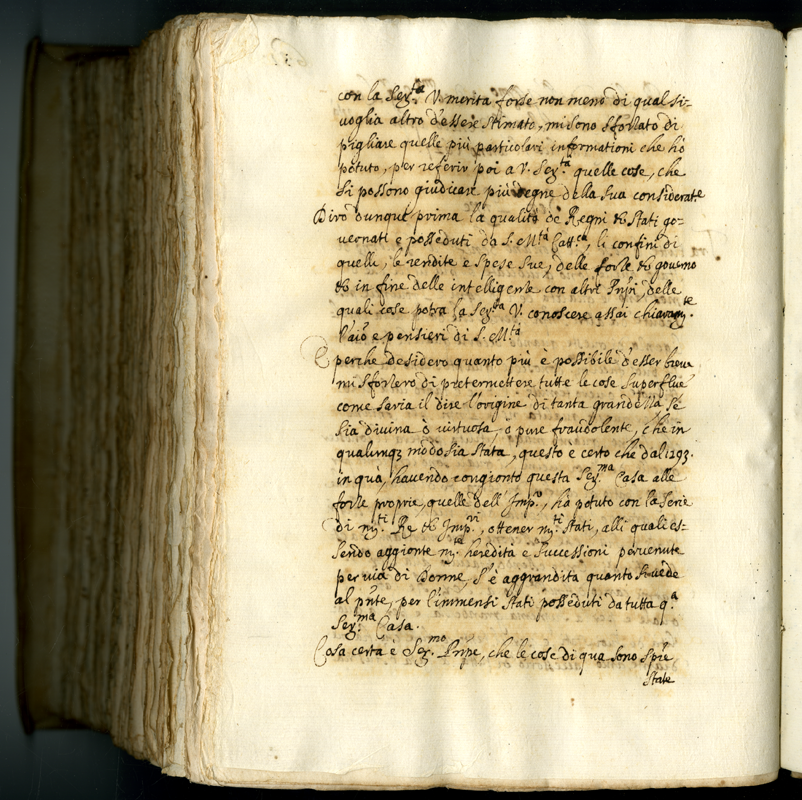 con la Ser.ta V. merita forse non meno di qual si=
voglia altro d'essere stimato, mi sono sforzato di
pigliare quelle più particolari informationi che hò
potuto, per referir poi a V. Ser.tà quelle cose, che
si possono giudicare più degne della sua considerate
Dirò dunque prima la qualità de Regni et Stati go=
vernati e posseduti da S. M.tà Catt.ca, li confini di
quelli, le rendite e spese sue, delle forze et governo
et in fine delle intelligenze con altri Prpi, delle
quali cose potrà la Ser.tà V. conoscere assai chiaram.te
l'aiō e pensieri di S. M.tà
E perche desidero quanto più è possibile d'esser breve
mi sforzerò di pretermettere tutte le cose superflue
come saria il dire l'origine di tanta grandezza se
sia divina ò virtuosa, ò pure fraudolente, che in
qualunq3 modo sia stata, questo è certo che dal 1293.
in quà, havendo congionto questa Ser.ma Casa alle
forze proprie, quelle dell'Imp.o, ha potuto con la serie
di m.ti Re et Imp.ri, ottener m.ti stati, alli quali es=
sendo aggionte m.te heredità e successioni pervenute
per via di Donne, s'è aggrandita quanto si vede
al pnte, per l'immensi stati posseduti da tutta q.a
Ser.ma Casa.
Cosa certa è Ser.mo Prnpe, che le cose di qua sono spie
state